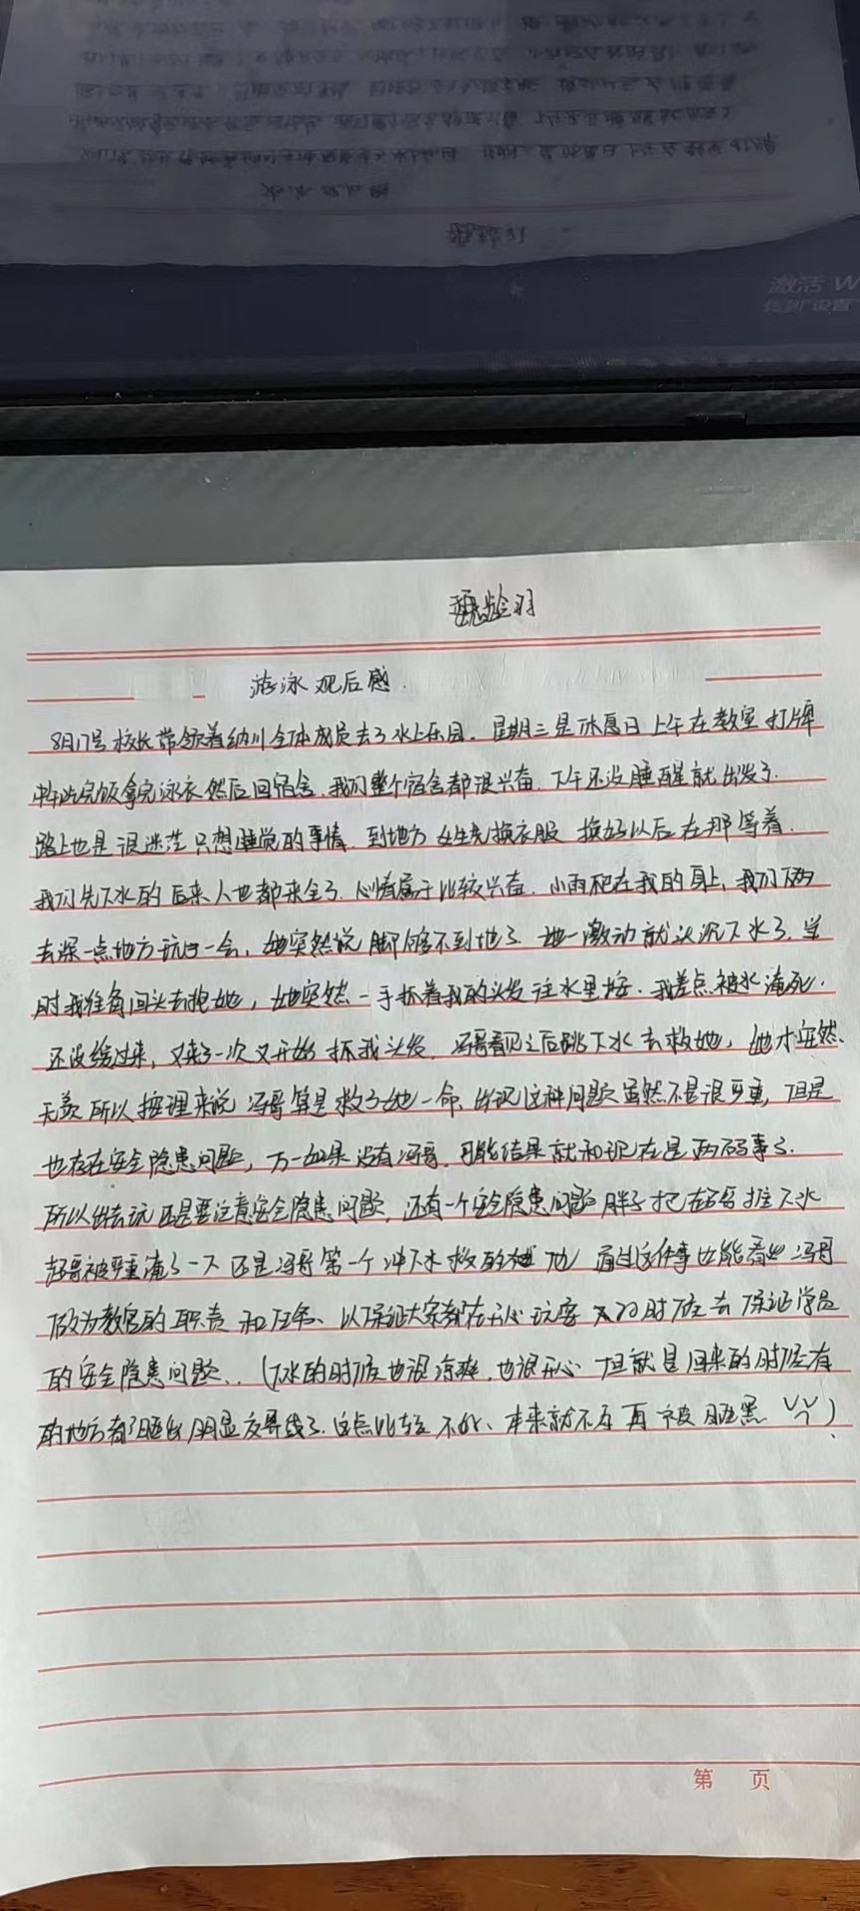 激活 W
转到"设置"
龄羽
游泳观后感.
8月17号校长带领着纳川全体成员去了水上乐园. 星期三是休息日上午在教室打牌
中午吃完饭拿完泳衣然后回宿舍.我们整个宿舍都很兴奋.下午还没睡醒就出发了.
路上也是很迷茫只想睡觉的事情.到地方女生先换衣服 换好以后在那等着.
我们先下水的后来人也都来全了.心情属于比较兴奋.小雨趴在我的身上,我们俩
去深一点地方玩了一会,她突然说脚够不到地了.她一激动就沉下水了.当
时我准备回头去抱她,她突然一手抓着我的头发往水里按.我差点被水淹死.
还没缓过来,又来了一次又开始抓我头发.冯哥看见之后跳下水去救她,她才安然.
无恙所以按理来说冯哥算是救了她一命.出现这种问题虽然不是很严重,但是
也存在安全隐患问题,万一如果没有冯哥.可能结果就和现在是两码事了.
所以出去玩还是要注意安全隐患问题.还有一个安全隐患问题胖子把赵哥推下水
赵哥被严重淹了一下还是冯哥第一个冲下水救的他 通过这件事也能看出冯哥
做为教官的职责和任务、以保证大家都在开心玩耍的时候去保证学员
的安全隐患问题..(下水的时候也很凉爽.也很开心 但就是回来的时候有
的地方都晒出明显交界线了.这点比较不好、本来就不白再被晒黑
第 页